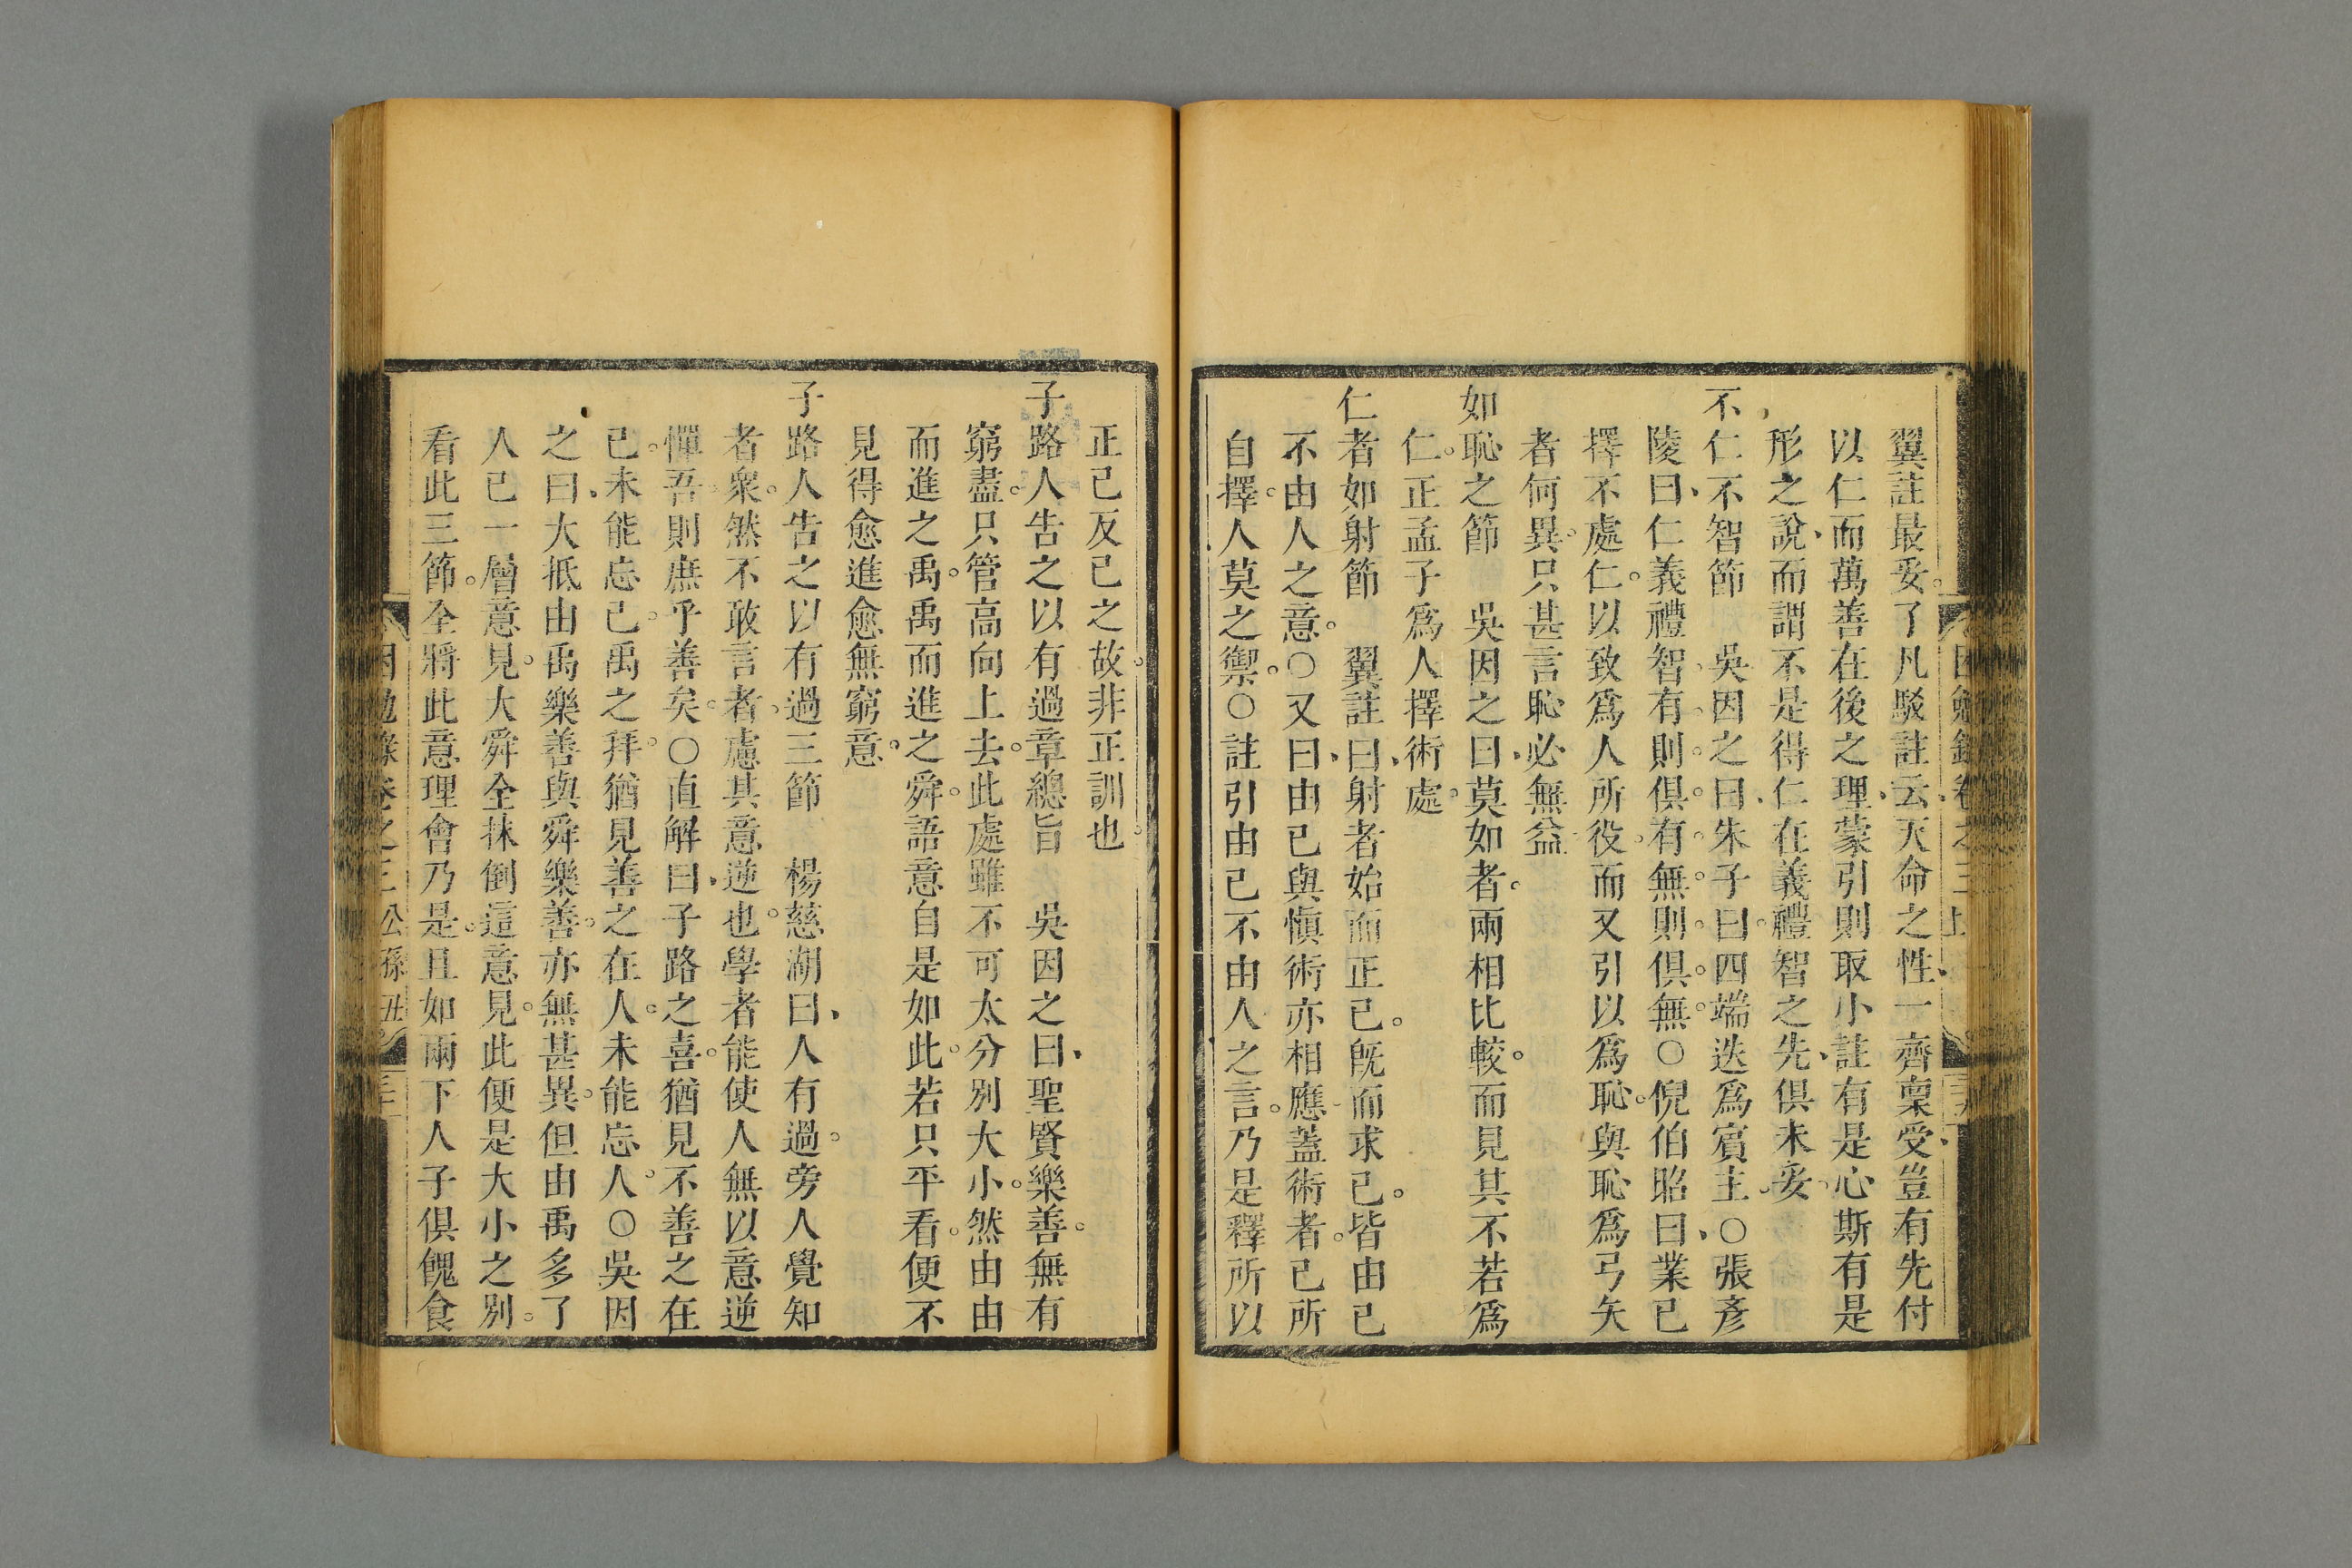 翼註最妥了凡駁註云天命之性一齊稟受豈有先付
以仁而萬善在後之理蒙引則取小註有是心斯有是
形之說而謂不是得仁在義禮智之先俱未妥
不仁不智節　吳因之曰朱子曰四端迭爲賓主○張彥
陵曰仁義禮智有則俱有無則俱無○倪伯昭曰業已
擇不處仁以致爲人所役而又引以爲恥與恥爲弓矢
者何異只甚言恥必無益
如恥之節　吳因之曰莫如者兩相比較而見其不若爲
仁正孟子爲人擇術處
仁者如射節　翼註曰射者始而正己既而求己皆由己
不由人之意○又曰由己與慎術亦相應蓋術者己所
自擇人莫之禦○註引由己不由人之言乃是釋所以
正己反己之故非正訓也
子路人告之以有過章總旨　吳因之曰聖賢樂善無有
窮盡只管高向上去此處雖不可太分別大小然由由
而進之禹禹而進之舜語意自是如此若只平看便不
見得愈進愈無窮意
子路人告之以有過三節　楊慈湖曰人有過旁人覺知
者衆然不敢言者慮其意逆也學者能使人無以意逆
憚吾則庶乎善矣○直解曰子路之喜猶見不善之在
己未能忘己禹之拜猶見善之在人未能忘人○吳因
之曰大抵由禹樂善與舜樂善亦無甚異但由禹多了
人己一層意見大舜全抹倒這意見此便是大小之別
看此三節全將此意理會乃是且如兩下人子俱餽食
困勉錄卷之三 公孫丑